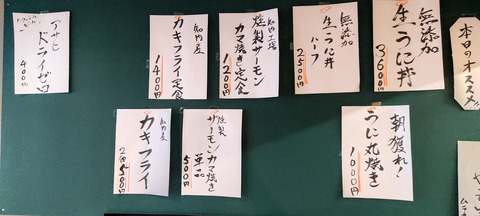 本日のオススメ
無添加
生うに丼
3600円
無添加
生うに丼
ハーフ
2500円
知内工場
燻製サーモン
カマ焼き定食
1200円
知内産
カキフライ定食
1400円
ノンアルコールビール
アサヒ
ドライゼロ
400円
朝獲れ!
うに丸焼き
1000円
燻製
サーモンカマ焼き
単品
500円
知内産
カキフライ
2個500円